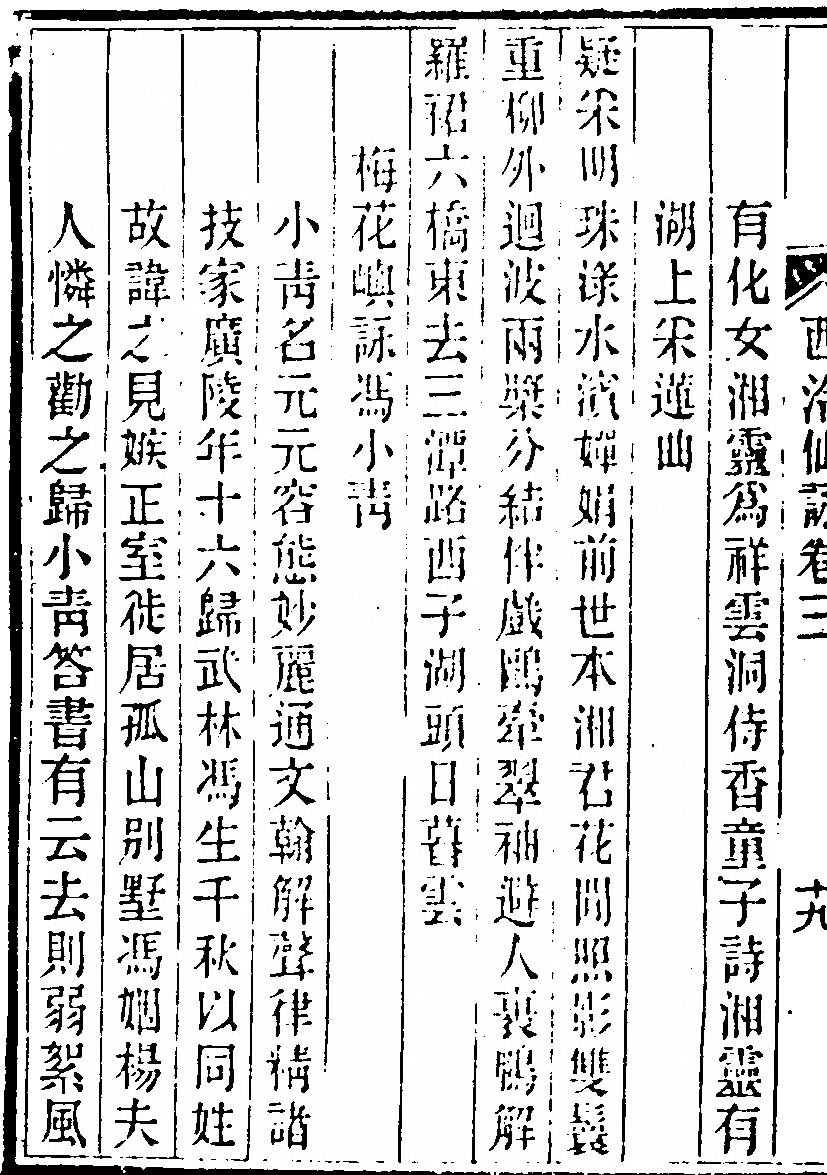 西泠仙詠卷三
十九
有化女湘靈爲祥雲洞侍香童子詩湘靈有
湖上采蓮曲
疑采明珠淥水濱嬋娟前世本湘君花間照影雙鬟
重柳外迴波兩槳分結伴戲鷗牽翠袖避人裹鴨解
羅裙六橋東去三潭路西子湖頭日暮雲
梅花嶼詠馮小靑
小靑名元元容態妙麗通文翰解聲律精諸
技家廣陵年十六歸武林馮生千秋以同姓
故諱之見嫉正室徙居孤山別墅馮姻楊夫
人憐之勸之歸小靑答書有云去則弱絮風